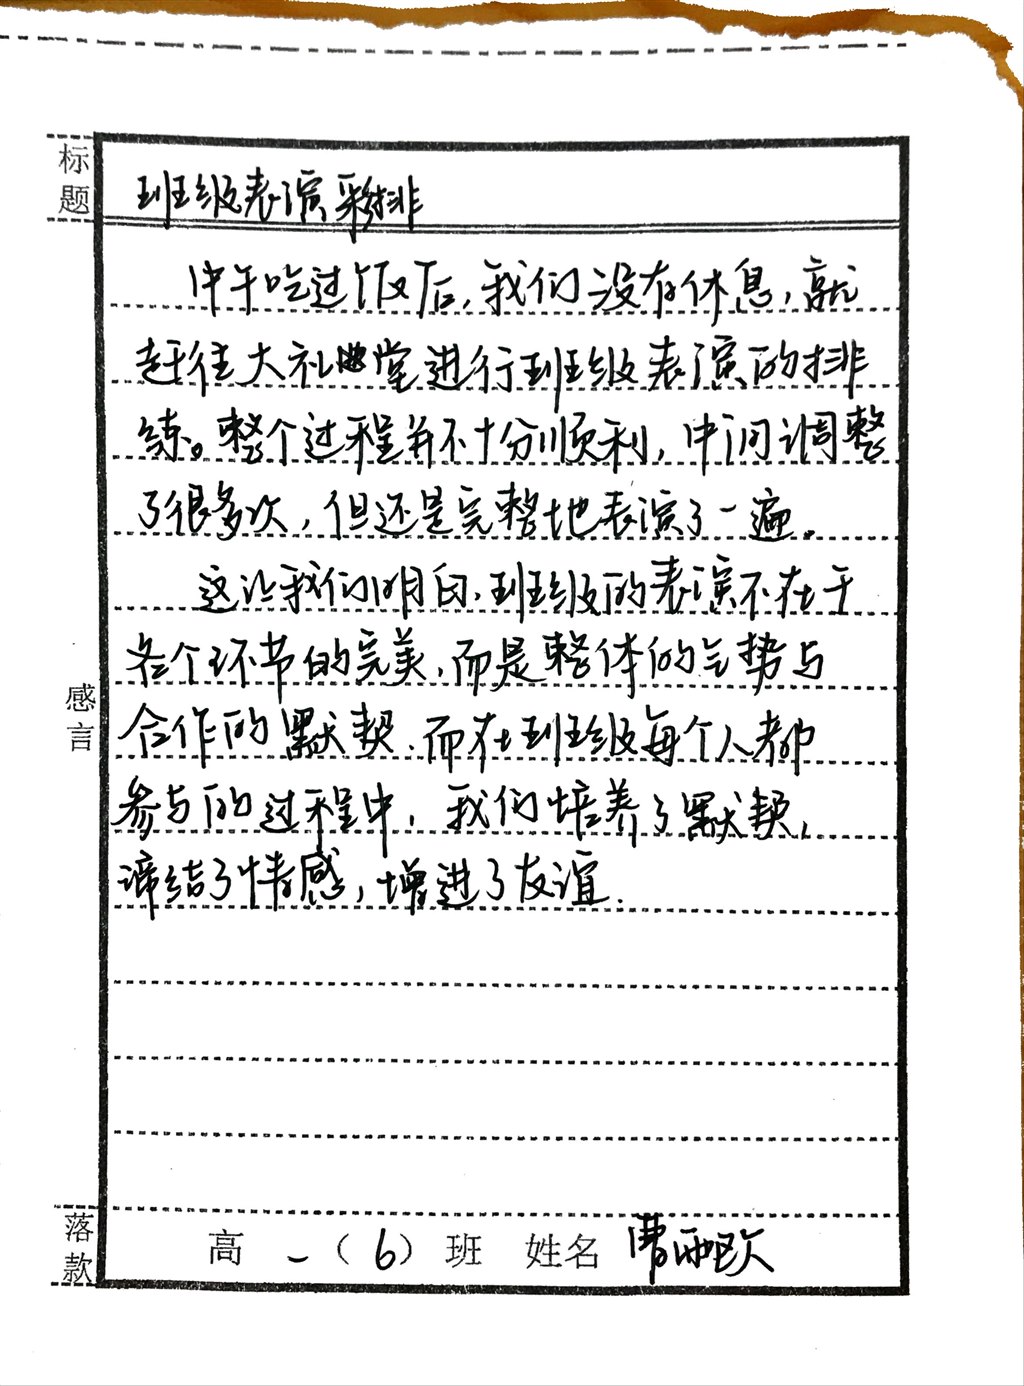 标题
班级表演彩排
中午吃过饭后，我们没有休息，就
赶往大礼堂进行班级表演的排
练。整个过程并不十分顺利，中间调整
了很多次，但还是完整地表演了一遍。
这让我们明白，班级的表演不在于
各个环节的完美，而是整体的气势与
合作的默契，而在班级每个人都
参与的过程中，我们培养了默契，
缔结了情感，增进了友谊.
感言
落款
高 一（6）班 姓名 曹雨欧